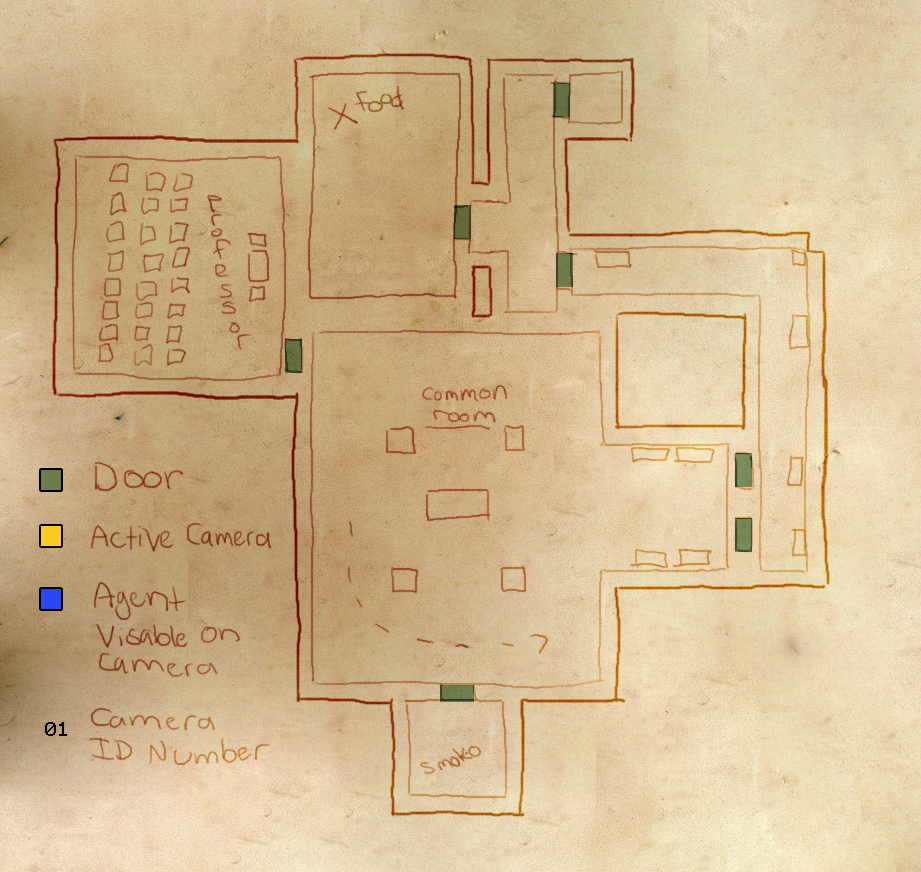 Food
Professor
Common
room
Door
Active Camera
Agent
Visable on
Camera
01
Camera
ID Number
Smoko